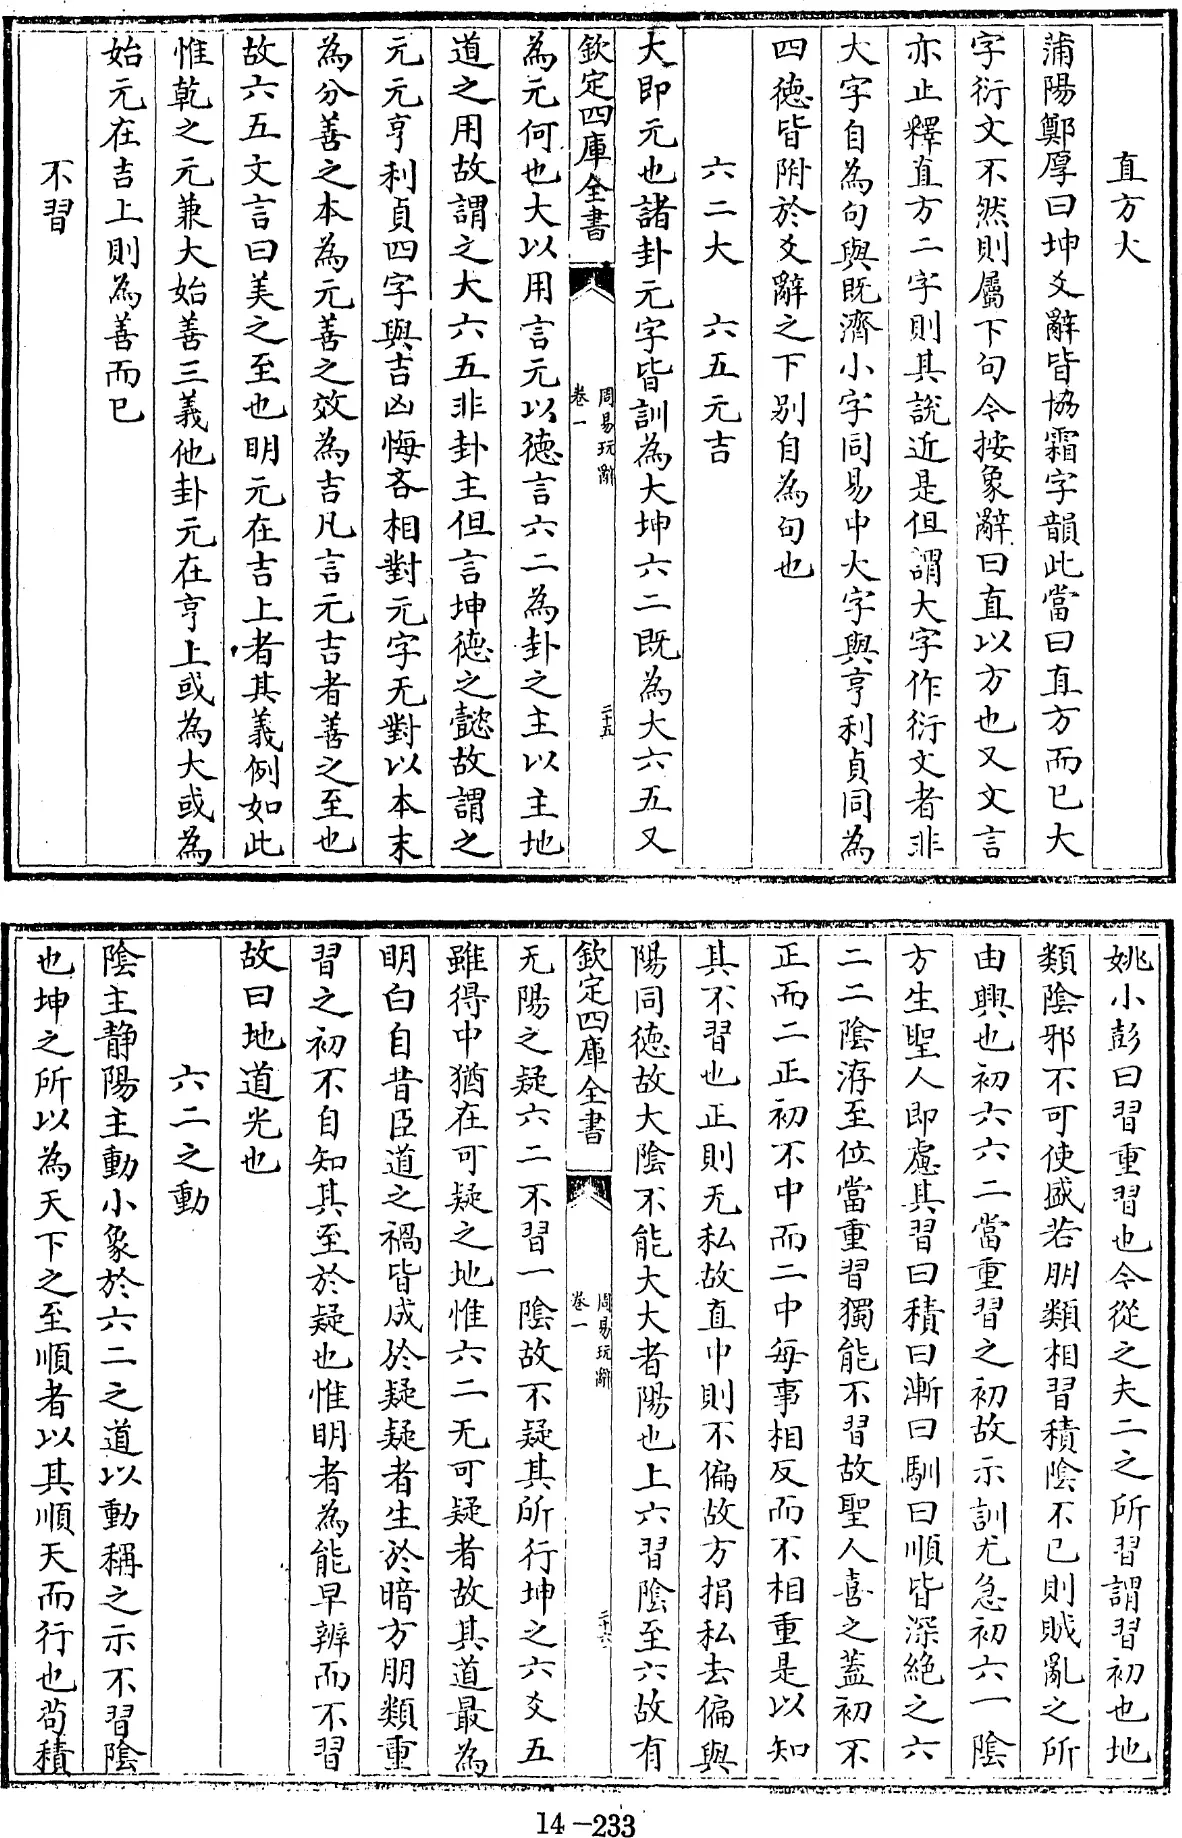 直方大
蒲陽鄭厚曰坤爻辭皆協霜字韻此當曰直方而已大
字衍文不然則屬下句今按象辭曰直以方也又文言
亦止釋直方二字則其説近是但謂大字作衍文者非
大字自為句與既濟小字同易中大字與亨利貞同為
四徳皆附於爻辭之下别自為句也
六二大　六五元吉
大即元也諸卦元字皆訓為大坤六二既為大六五又
欽定四庫全書
周易玩辭
卷一
二十五
為元何也大以用言元以徳言六二為卦之主以主地
道之用故謂之大六五非卦主但言坤徳之懿故謂之
元元亨利貞四字與吉凶悔吝相對元字无對以本末
為分善之本為元善之效為吉凡言元吉者善之至也
故六五文言曰美之至也明元在吉上者其義例如此
惟乾之元兼大始善三義他卦元在亨上或為大或為
始元在吉上則為善而已
不習
姚小彭曰習重習也今從之夫二之所習謂習初也地
類陰邪不可使盛若朋類相習積陰不已則賊亂之所
由興也初六六二當重習之初故示訓尤急初六一陰
方生聖人即慮其習曰積曰漸曰馴曰順皆深絶之六
二二陰洊至位當重習獨能不習故聖人喜之蓋初不
正而二正初不中而二中每事相反而不相重是以知
其不習也正則无私故直中則不偏故方捐私去偏與
陽同徳故大陰不能大大者陽也上六習陰至六故有
欽定四庫全書
周易玩辭
卷一
二十六
无陽之疑六二不習一陰故不疑其所行坤之六爻五
雖得中猶在可疑之地惟六二无可疑者故其道最為
明白自昔臣道之禍皆成於疑疑者生於暗方朋類重
習之初不自知其至於疑也惟明者為能早辨而不習
故曰地道光也
六二之動
陰主静陽主動小象於六二之道以動稱之示不習陰
也坤之所以為天下之至順者以其順天而行也苟積
14-233